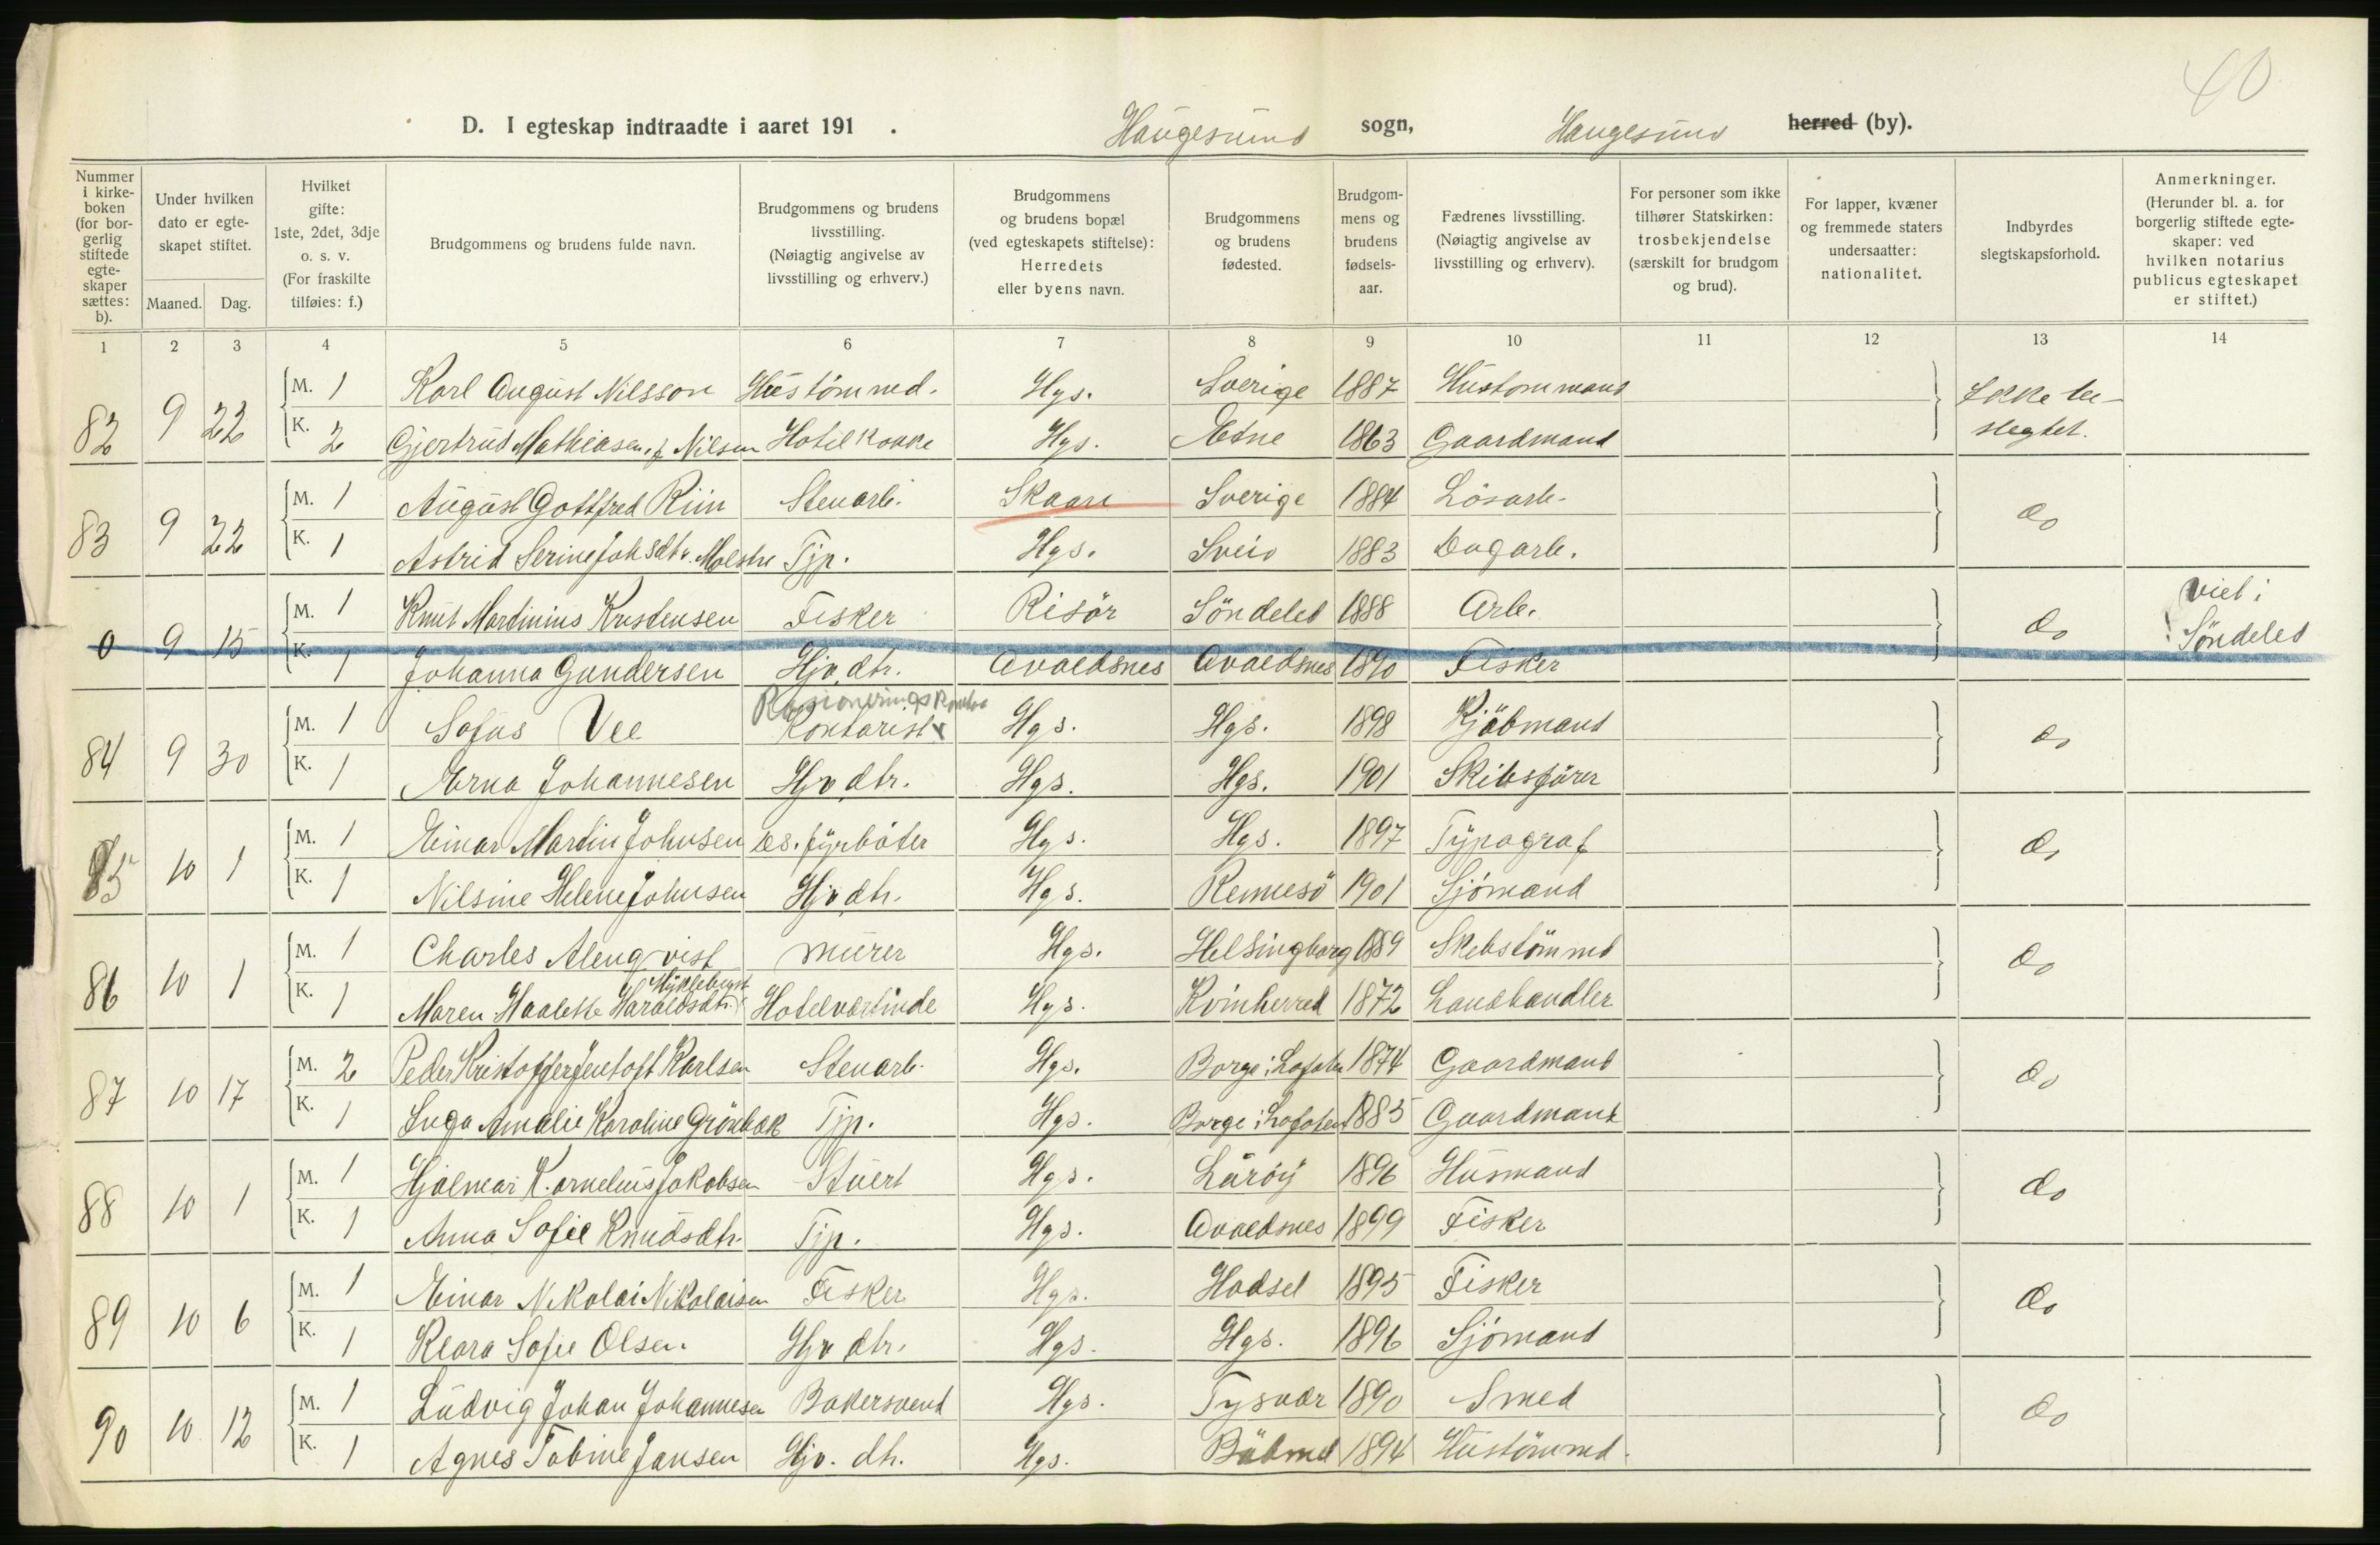 40
D. I egteskap indtraadte i aaret 191 . Haugesund sogn, Haugesund herred (by).
Nummer i kirkeboken (for borgerlig stiftede egteskaper sættes: b).
Under hvilken dato er egteskapet stiftet.
Maaned. Dag.
Hvilket gifte: 1ste, 2det, 3dje o. s. v. (For fraskilte tilføies: f.)
Brudgommens og brudens fulde navn.
Brudgommens og brudens livsstilling. (Nøiagtig angivelse av livsstilling og erhverv.)
Brudgommens og brudens bopæl (ved egteskapets stiftelse): Herredets eller byens navn.
Brudgommens og brudens fødested.
Brudgommens og brudens fødselsaar.
Fædrenes livsstilling. (Nøiagtig angivelse av livsstilling og erhverv).
For personer som ikke tilhører Statskirken: trosbekjendelse (særskilt for brudgom og brud).
For lapper, kvæner og fremmede staters undersaatter: nationalitet.
Indbyrdes slegtskapsforhold.
Anmerkninger. (Herunder bl. a. for borgerlig stiftede egteskaper: ved hvilken notarius publicus egteskapet er stiftet.)
1 2 3 4 5 6 7 8 9 10 11 12 13 14
82 9 22 M. 1 Karl August Nilsson Hustømmd. Hgs. Sverige 1887 Hustømmand Ikke be-
K. 2 Gjertrud Mathiasen, f. Nilsen Hotelkokke Hgs. Etne 1863 Gaardmand slegtet.
83 9 22 M. 1 August Gottfred Riin Stenarb. Skaare Sverige 1884 Løsarb. do
K. 1 Astrid Serine Johsdtr. Molstre Tjp. Hgs. Sveio 1883 Dagarb.
0 9 15 M. 1 Knut Martinius Kristensen Fisker Risör Söndeled 1888 Arb. do viet i
K. 1 Johanna Gundersen Hjv. dtr. Avaldsnes Avaldsnes 1890 Fisker Söndeled
Rasjoneringskontor
84 9 30 M. 1 Sofus Vee Kontorist Hgs. Hgs. 1898 Kjøbmand do
K. 1 Erna Johannesen Hjv. dtr. Hgs. Hgs. 1901 Skibsfører
85 10 1 M. 1 Einar Martin Johnsen Ds. fyrbøter Hgs. Hgs. 1897 Typograf do
K. 1 Nilsine Helene Johnsen Hjv. dtr. Hgs. Rennesö 1901 Sjømand
86 10 1 M. 1 Charles Alengvist Murer Hgs. Helsingborg 1889 Skibstømmd do
Myklebust
K. 1 Maren Haaleste Haraldsdtr. Hotelvertinde Hgs. Kvinherred 1872 Landhandler
87 10 17 M. 2 Peder Kristoffer Jentoft Karlsen Stenarb. Hgs. Borge i Lofoten 1874 Gaardmand do
K. 1 Inga Amalie Karoline Grönbæk Tjp. Hgs. Borge i Lofoten 1885 Gaardmand
88 10 1 M. 1 Hjalmar Kornelius Jakobsen Stuert Hgs. Lurøy 1896 Husmand do
K. 1 Anna Sofie Knudsdtr. Tjp. Hgs. Avaldsnes 1899 Fisker
89 10 6 M. 1 Einar Nikolai Nikolaisen Fisker Hgs. Hadsel 1895 Fisker do
K. 1 Klara Sofie Olsen. Hjv. dtr. Hgs. Hgs. 1896 Sjømand
90 10 12 M. 1 Ludvig Johan Johannesen Bakersvend Hgs. Tysvær 1890 Smed do
K. 1 Agnes Tobine Jansen Hjv. dtr. Hgs. 1894 Hustømmd.